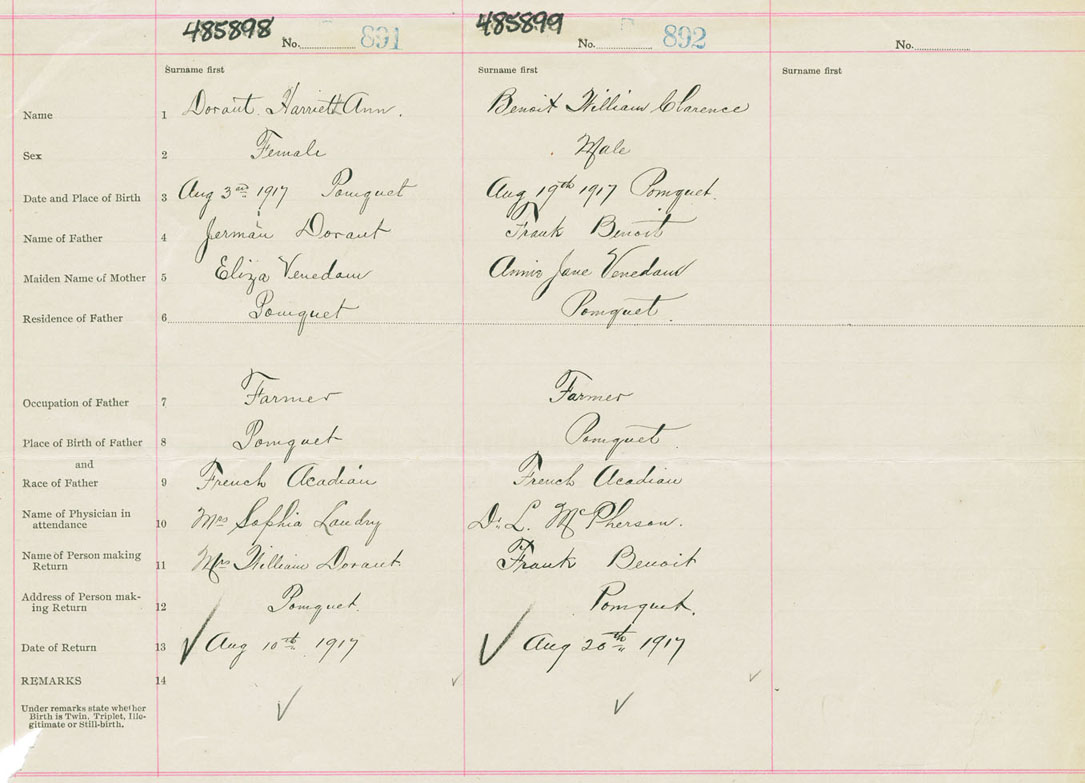 485898 No. 891
485899 No. 892
No.
Surname first Surname first Surname first
Name 1 Dorant Harriett Ann. Benoit William Clarence
Sex 2 Female Male
Date and Place of Birth 3 Aug 3rd 1917 Pomquet Aug 19th 1917 Pomquet.
Name of Father 4 Jerman Dorant Frank Benoit
Maiden Name of Mother 5 Eliza Venedam Annie Jane Venedam
Residence of Father 6 Pomquet Pomquet.
Occupation of Father 7 Farmer Farmer
Place of Birth of Father 8 Pomquet Pomquet.
and
Race of Father 9 French Acadian French Acadian
Name of Physician in
attendance 10 Mrs Sophia Landry Dr L. McPherson.
Name of Person making
Return 11 Mrs William Dorant Frank Benoit
Address of Person mak-
ing Return 12 Pomquet. Pomquet.
Date of Return 13 Aug 10th 1917 Aug 20th 1917
REMARKS 14
Under remarks state whether
Birth is Twin. Triplet, Ille-
gitimate or Still-birth.